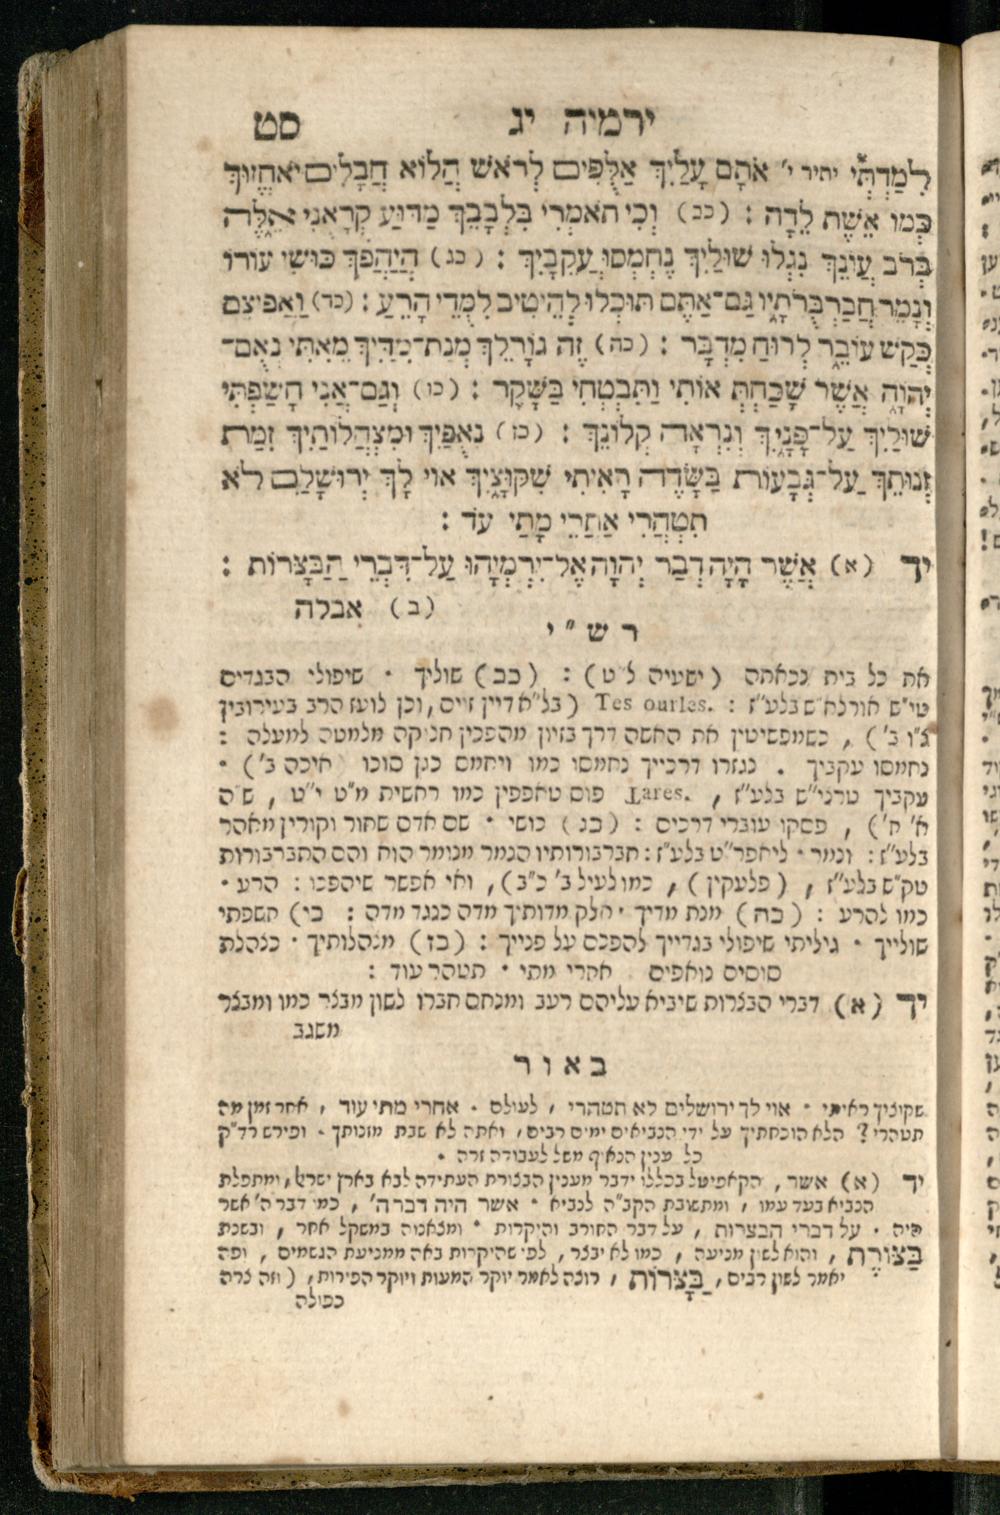 ירמיה יג סט
לִמַּדְתְּי יתיר י' אֹתָם עָלַיִךְ אַלֻּפִים לְרֹאשׁ הֲלוֹא חֲבָלִים יֹאחֱזוּךְ
כְּמוֹ אֵשֶׁת לֵדָה : (כב) וְכִי תֹאמְרִי בִּלְבָבֵךְ מַדּוּעַ קְרָאֻנִי אֵלֶּה
בְּרֹב עֲוֺנֵךְ נִגְלוּ שׁוּלַיִךְ נֶחְמְסוּ עֲקֵבָיִךְ : (כג) הֲיַהֲפֹךְ כּוּשִׁי עוֹרוֹ
וְנָמֵר חֲבַרְבֻּרֹתָיו גַּם־אַתֶּם תּוּכְלוּ לְהֵיטִיב לִמֻּדֵי הָרֵעַ : (כד) וַאֲפִיצֵם
כְּקַשׁ עוֹבֵר לְרוּחַ מִדְבָּר : (כה) זֶה גוֹרָלֵךְ מְנָת־מִדַּיִךְ מֵאִתִּי נְאֻם־
יְהוָה אֲשֶׁר שָׁכַחַתְּ אוֹתִי וַתִּבְטְחִי בַּשָּׁקֶר : (כו) וְגַם־אֲנִי חָשַׂפְתִּי
שׁוּלַיִךְ עַל־פָּנָיִךְ וְנִרְאָה קְלוֹנֵךְ : (כז) נִאֻפַיִךְ וּמִצְהֲלוֹתַיִךְ זִמַּת
זְנוּתֵךְ עַל־גְּבָעוֹת בַּשָּׂדֶה רָאִיתִי שִׁקּוּצָיִךְ אוֹי לָךְ יְרוּשָׁלִַם לֹא
תִטְהֲרִי אַחֲרֵי מָתַי עֹד :
יד (א) אֲשֶׁר הָיָה דְבַר יְהוָה אֶל־יִרְמְיָהוּ עַל־דִּבְרֵי הַבַּצָּרוֹת :
(ב) אבלה
רש"י
את כל בית נכאתה (ישעיה ל"ט) : (כב) שוליך · שיפולי הבגדים
טי"ש אורלא"ש בלע"ז : Tes ourles. (בל"א דיין זוים, וכן לועז הרב בעירובין
ג"ו ב') , כשמפשיטין את האשה דרך בזיון מהפכין חלוקה מלמטה למעלה :
נחמסו עקביך . נגזרו דרכייך נחמסו כמו ויחמס כגן סוכו (איכה ב') ·
עקביך טרני"ש בלע"ז , Tares. פוס טאפפין כמו ראשית מ"ט י"ט , ש"ה
א' ח') , פסקו עוברי דרכים : (כג) כושי · שם אדם שחור וקורין מאהר
בלע"ז : ונמר · ליאפר"ט בלע"ז : חברבורותיו הנמר מנומר הוא והם החברבורות
טק"ש בלע"ז , (פלעקין) , כמו לעיל ב' כ"ב), ואי אפשר שיהפכו : הרע ·
כמו להרע : (כה) מנת מדיך · חלק מדותיך מדה כנגד מדה : כי) חשפתי
שולייך · גיליתי שיפולי בגדייך להפכם על פנייך : (כז) מצהלותיך · כצהלת
סוסים נואפים אחרי מתי · תטהר עוד :
יד (א) דברי הבצרות שיביא עליהם רעב ומנחם חברו לשון מבצר כמו ומבצר
משגב
באור
שקוציך ראיתי · אוי לך ירושלים לא תטהרי , לעולם · אחרי מתי עוד , אחר זמן מה
תטהרי ? הלא הוכחתיך על ידי הנביאים ימים רבים, ואתה לא שבת מזנותך · ופירש רד"ק
כל ענין הנאוף משל לעבודה זרה ·
יד (א) אשר , הקאפיטל בכללו ידבר מענין הבצורת העתידה לבא בארץ ישראל, ומתפלת
הנביא בעד עמו , ומתשובת הקב"ה לנביא · אשר היה דבר ה' , כמו דבר ה' אשר
היה · על דברי הבצרות , על דבר החורב והיקרות · ומצאנוה במשקל אחר , ובשנת
בַּצֹּורֶת , והוא לשון מניעה , כמו לא יבצר, לפי שהיקרות באה ממניעת הגשמים , ופה
יאמר לשון רבים, בַּצָּרוֹת , רוצה לאמר יוקר המעות ויוקר הפירות, (וזה צרה
כפולה